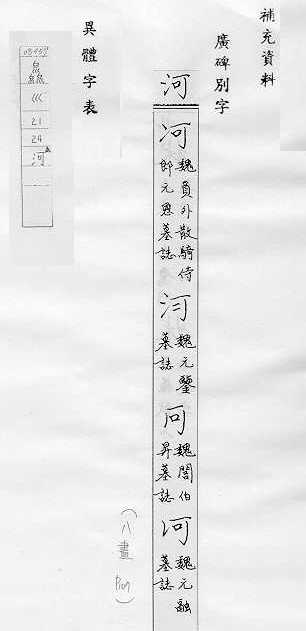 補充資料
廣碑別字
河
河
魏員外散騎侍
郎元恩墓誌
魏元鑒
墓誌
魏閻伯
昇墓誌
河
魏元融
墓誌
(八畫
異體字表
巛
21
24
河